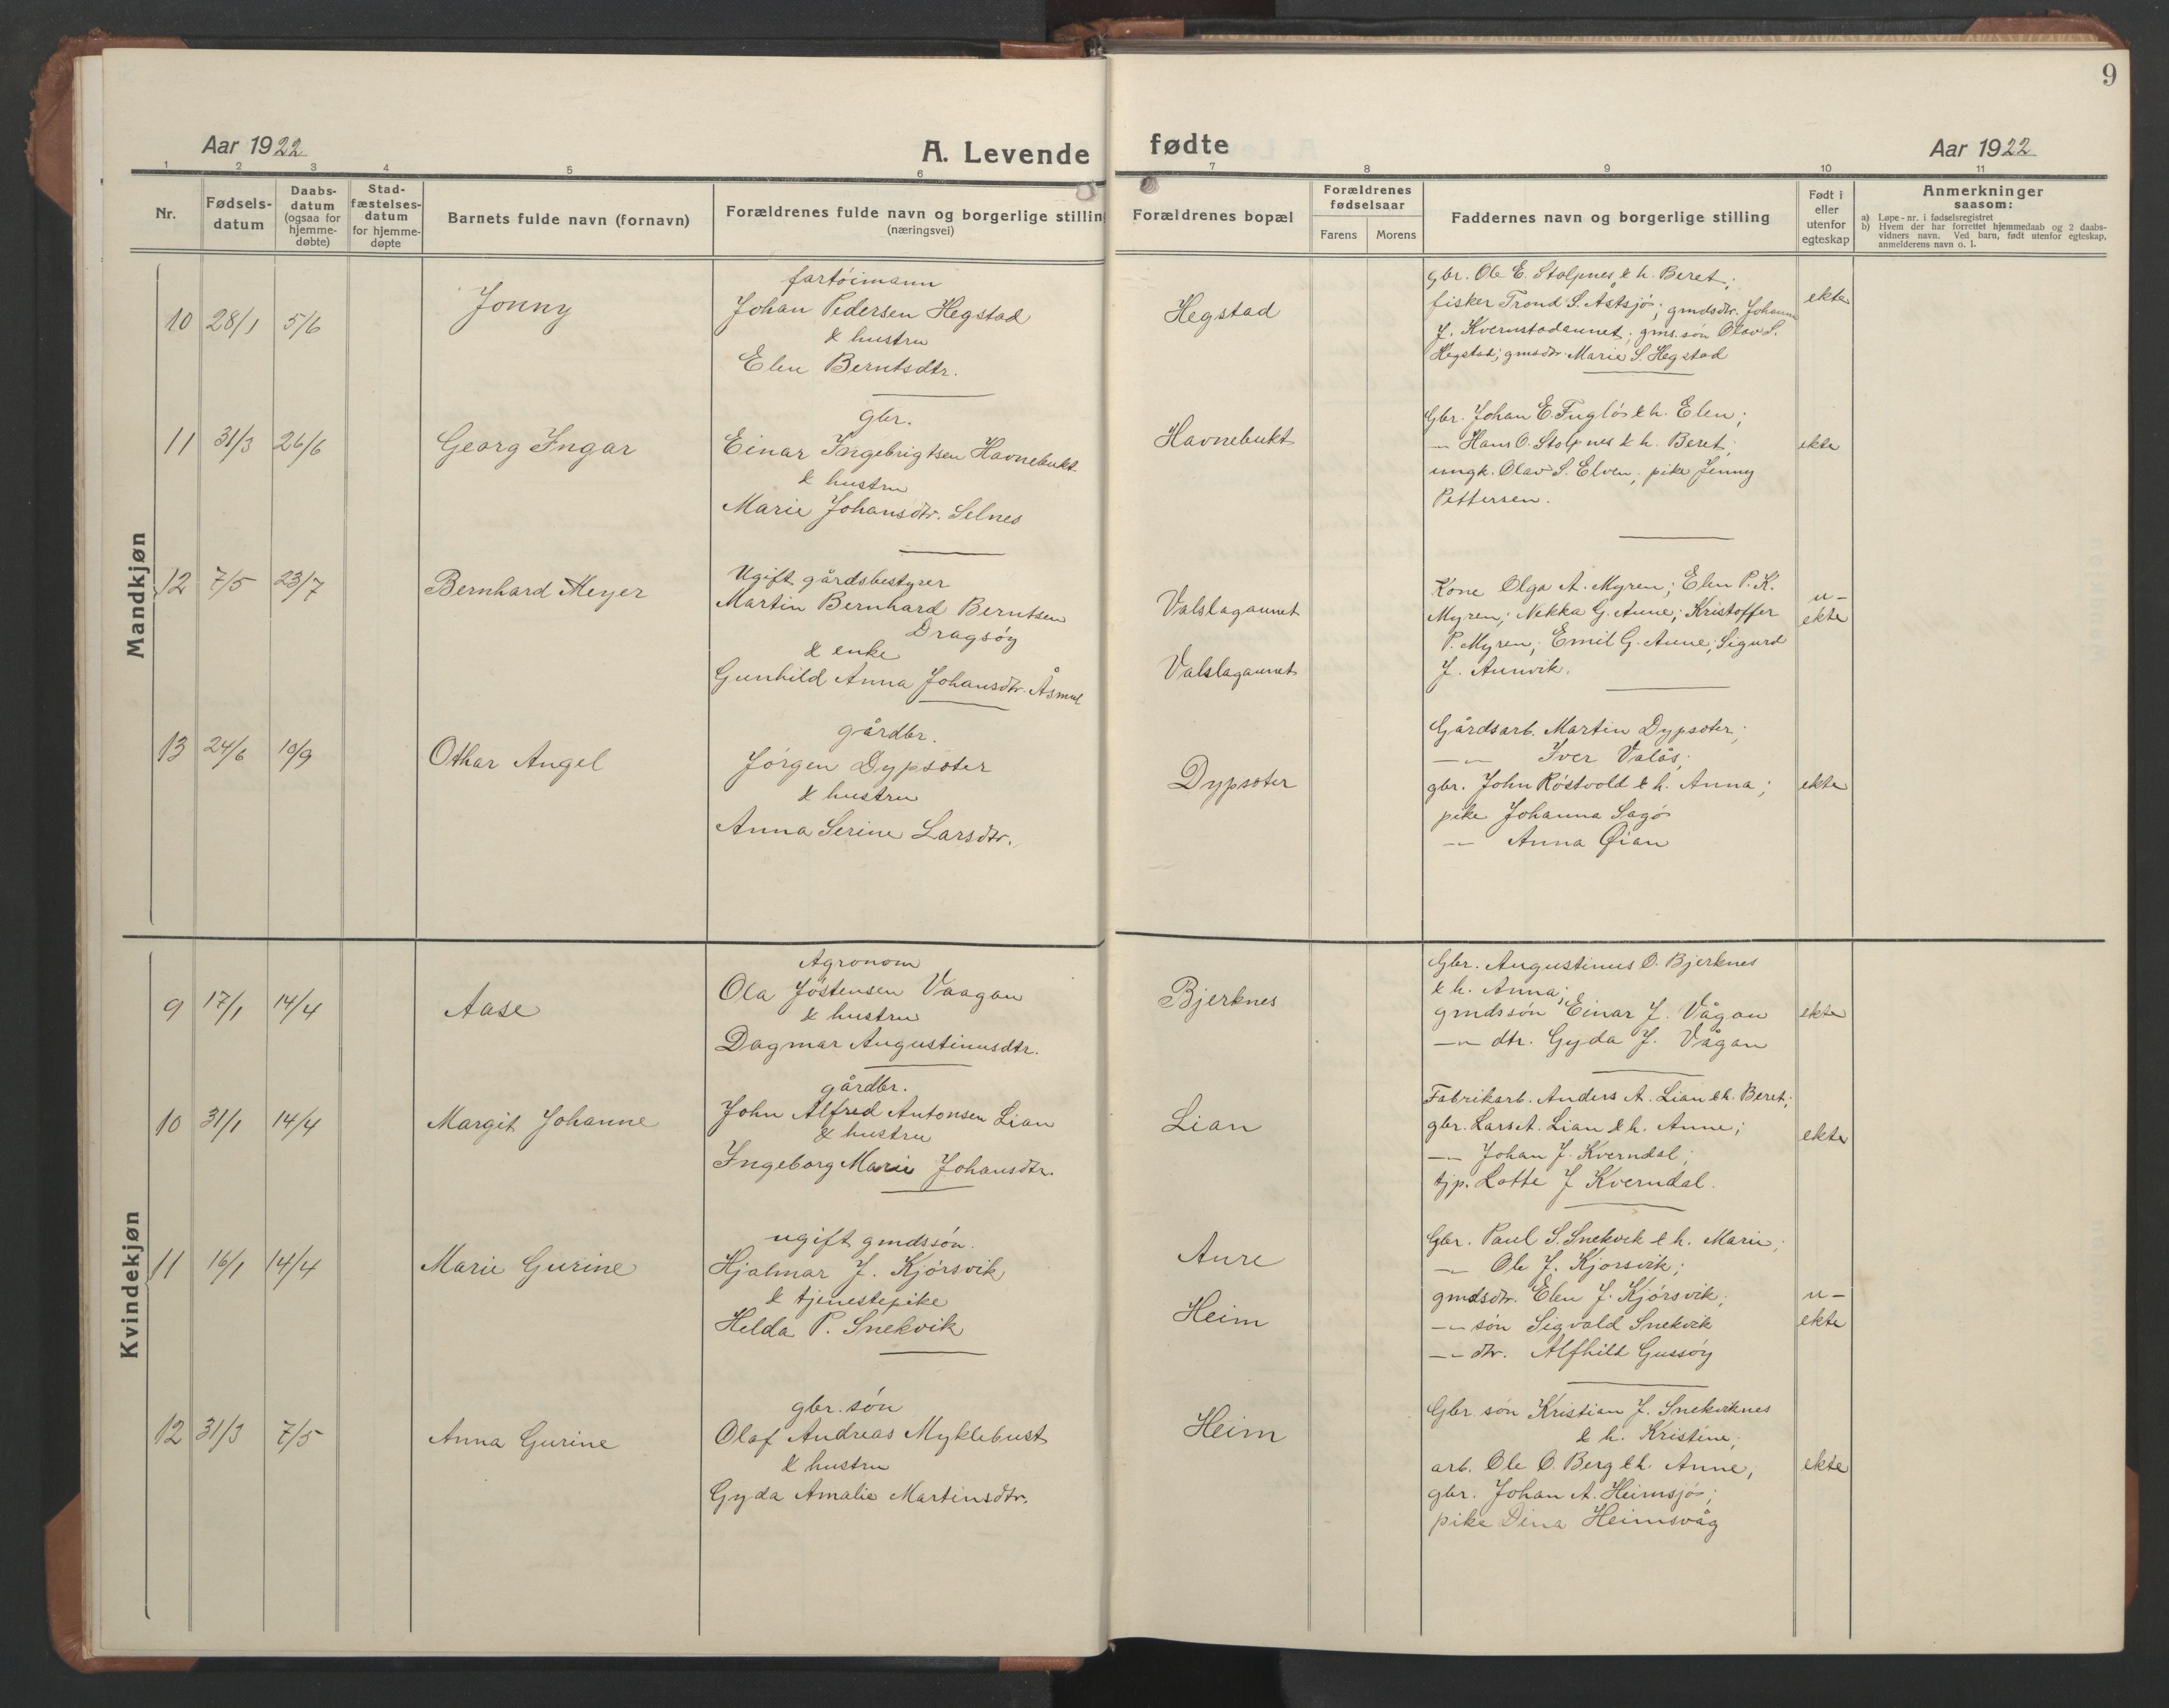 9
Aar 1922
A. Levende fødte
Aar 1922
1 2 3 4 5 6 7 8 9 10 11
Nr.
Fødsels-
datum
Daabs-
datum
(ogsaa for
hjemme-
døbte)
Stad-
fæstelses-
datum
for hjemme-
døpte
Barnets fulde navn (fornavn)
Forældrenes fulde navn og borgerlige stilling
(næringsvei)
Forældrenes bopæl
Forældrenes
fødselsaar
Farens Morens
Faddernes navn og borgerlige stilling
Født i
eller
utenfor
egteskap
Anmerkninger
saasom:
a) Løpe-nr. i fødselsregistret
b) Hvem der har forrettet hjemmedaab og 2 daabs-
vidners navn. Ved barn, født utenfor egteskap,
anmelderens navn o. l.
Mandkjøn
10 28/1 5/6
Jonny
fartöimann
Johan Pedersen Hegstad
& hustru
Elen Berntsdtr.
Hegstad
gbr. Ole E. Stolpnes & h. Beret;
fisker Trond S. Astsjö; gmdsdtr. Johanna
J. Kvernstadaunet; gms. sön Olav S.
Hegstad; gmsdtr. Marie S. Hegstad
ekte
11 31/3 26/6
Georg Ingar
gbr.
Einar Ingebrigtsen Havnebukt
& hustru
Marie Johansdtr. Selnes
Havnebukt
Gbr. Johan E. Fuglös & h. Elen;
—"— Hans O. Stolpnes & h. Beret;
ungk. Olav S. Elven; pike Jenny
Pettersen.
ekte
12 7/5 23/7
Bernhard Meyer
Ugift gårdsbestyrer
Martin Bernhard Berntsen
Dragsöy
& enke
Gunhild Anna Johansdtr. Åsmul
Valslagaunet
Valslagaunet
Kone Olga A. Myren; Elen P. K.
Myren; Nekka G. Aune; Kristoffer
P. Myren; Emil G. Aune; Sigurd
J. Aunvik.
u-
ekte
13 24/6 10/9
Othar Angel
gårdbr.
Jörgen Dypseter
& hustru
Anna Serine Larsdtr.
Dypseter
Gårdsarb. Martin Dypseter;
—"— Iver Valås;
gbr. John Röstvold & h. Anna;
pike Johanna Sagö
—"— Anna Øian
ekte
Kvindekjøn
9 17/1 14/4
Aase
Agronom
Ola Jöstensen Vaagan
& hustru
Dagmar Augustinusdtr.
Bjerknes
Gbr. Augustinus O. Bjerknes
& h. Anna;
gmdssön Einar J. Vågan
—"— dtr. Gyda J. Vågan
ekte
10 31/1 14/4
Margit Johanne
gårdbr.
John Alfred Antonsen Lian
& hustru
Ingeborg Marie Johansdtr.
Lian
Fabrikarb. Anders A. Lian & h. Beret;
gbr. Lars A. Lian & h. Anne;
—"— Johan J. Kverndal;
tjp. Lotte J Kverndal.
ekte
11 16/1 14/4
Marie Gurine
ugift gmdssön.
Hjalmar J. Kjörsvik
& tjenestepike
Helda P. Snekvik
Aure
Heim
Gbr. Paul S. Snekvik & h. Marie;
—"— Ole J. Kjörsvik;
gmdsdtr. Elen J. Kjörsvik;
—"— sön Sigvald Snekvik
—"— dtr. Alfhild Gussöy
u-
ekte
12 31/3 7/5
Anna Gurine
gbr. sön
Olaf Andreas Myklebust
& hustru
Gyda Amalie Martinsdtr.
Heim
Gbr. sön Kristian J. Snekviknes
& h. Kristine;
arb. Ole O. Berg & h. Anne;
gbr. Johan A. Heimsjö;
pike Dina Heimsvåg
ekte